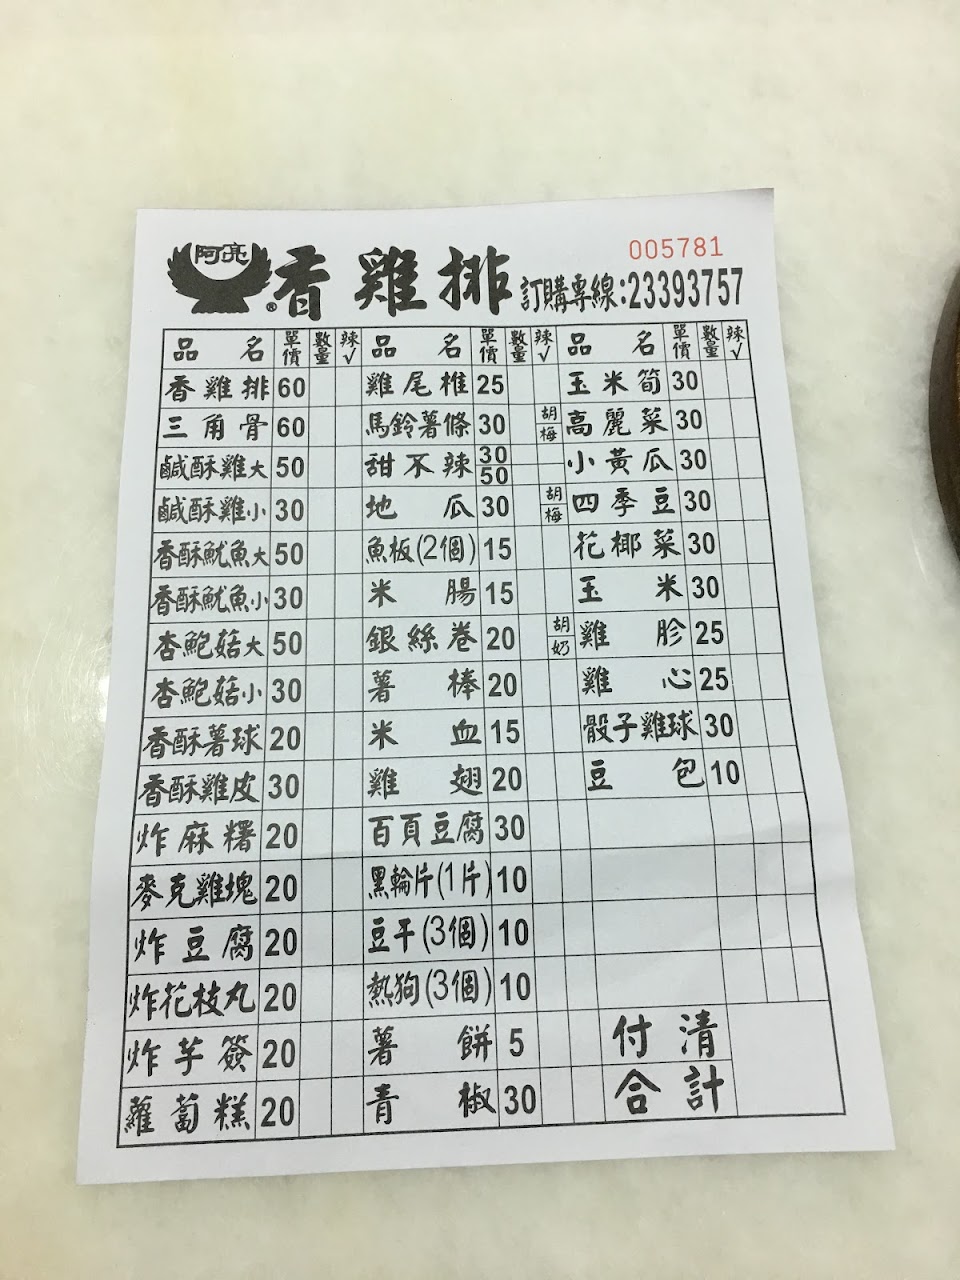 005781
阿亮 香雞排 訂購專線:23393757
®
品名 單價 數量 辣√ 品名 單價 數量 辣√ 品名 單價 數量 辣√
香雞排 60 雞尾椎 25 玉米筍 30
三角骨 60 馬鈴薯條 30 胡 梅 高麗菜 30
鹹酥雞大 50 甜不辣 30 50 小黃瓜 30
鹹酥雞小 30 地瓜 30 胡 梅 四季豆 30
香酥魷魚大 50 魚板(2個) 15 花椰菜 30
香酥魷魚小 30 米腸 15 玉米 30
杏鮑菇大 50 銀絲卷 20 胡 奶 雞胗 25
杏鮑菇小 30 薯棒 20 雞心 25
香酥薯球 20 米血 15 骰子雞球 30
香酥雞皮 30 雞翅 20 豆包 10
炸麻糬 20 百頁豆腐 30
麥克雞塊 20 黑輪片(1片) 10
炸豆腐 20 豆干(3個) 10
炸花枝丸 20 熱狗(3個) 10
炸芋簽 20 薯餅 5 付清
蘿蔔糕 20 青椒 30 合計